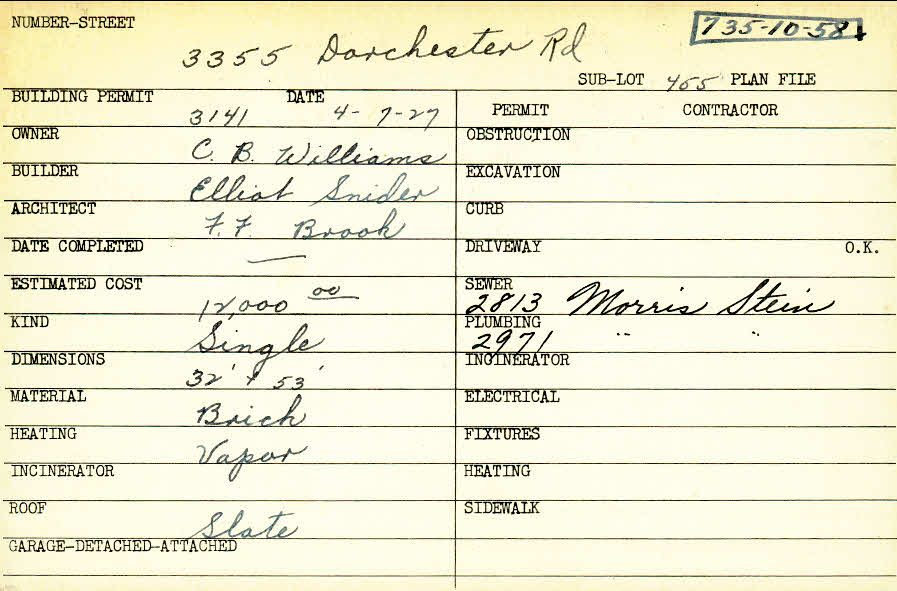 NUMBER-STREET
735-10-58
3355 Dorchester Rd
SUB-LOT 455 PLAN FILE
BUILDING PERMIT 3141 DATE 4-7-27
OWNER C. B. Williams
BUILDER Elliot Snider
ARCHITECT F. F. Brook
DATE COMPLETED —
ESTIMATED COST 12,000 00
KIND Single
DIMENSIONS 32' x 53'
MATERIAL Brick
HEATING Vapor
INCINERATOR
ROOF Slate
GARAGE-DETACHED-ATTACHED
PERMIT CONTRACTOR
OBSTRUCTION
EXCAVATION
CURB
DRIVEWAY O.K.
SEWER 2813 Morris Stein
PLUMBING 2971 " "
INCINERATOR
ELECTRICAL
FIXTURES
HEATING
SIDEWALK